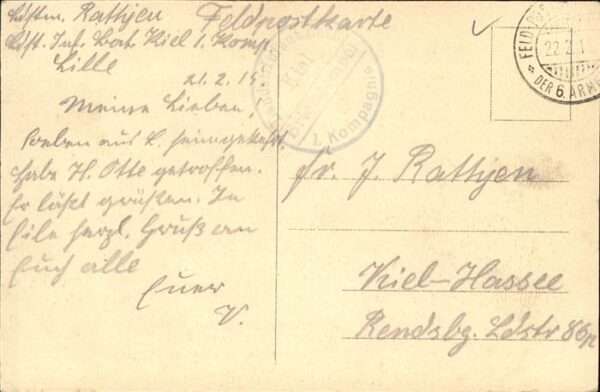 Ldstm. Rattjen
Feldpostkarte
Ldst. Inf. Bat. Kiel 1. Komp.
Lille
21.2.15
Meine Lieben,
Soeben aus L. heimgekehrt.
habe H. Otte getroffen.
Er läßt grüßen. In
Eile herzl. Gruß an
Euch alle
Euer
V.
Kiel
1. Kompagnie
FELDPOST
22.2.1
DER 6. ARMEE
Fr. J. Rattjen
Kiel-Hassee
Rendsbg. Ldstr 86